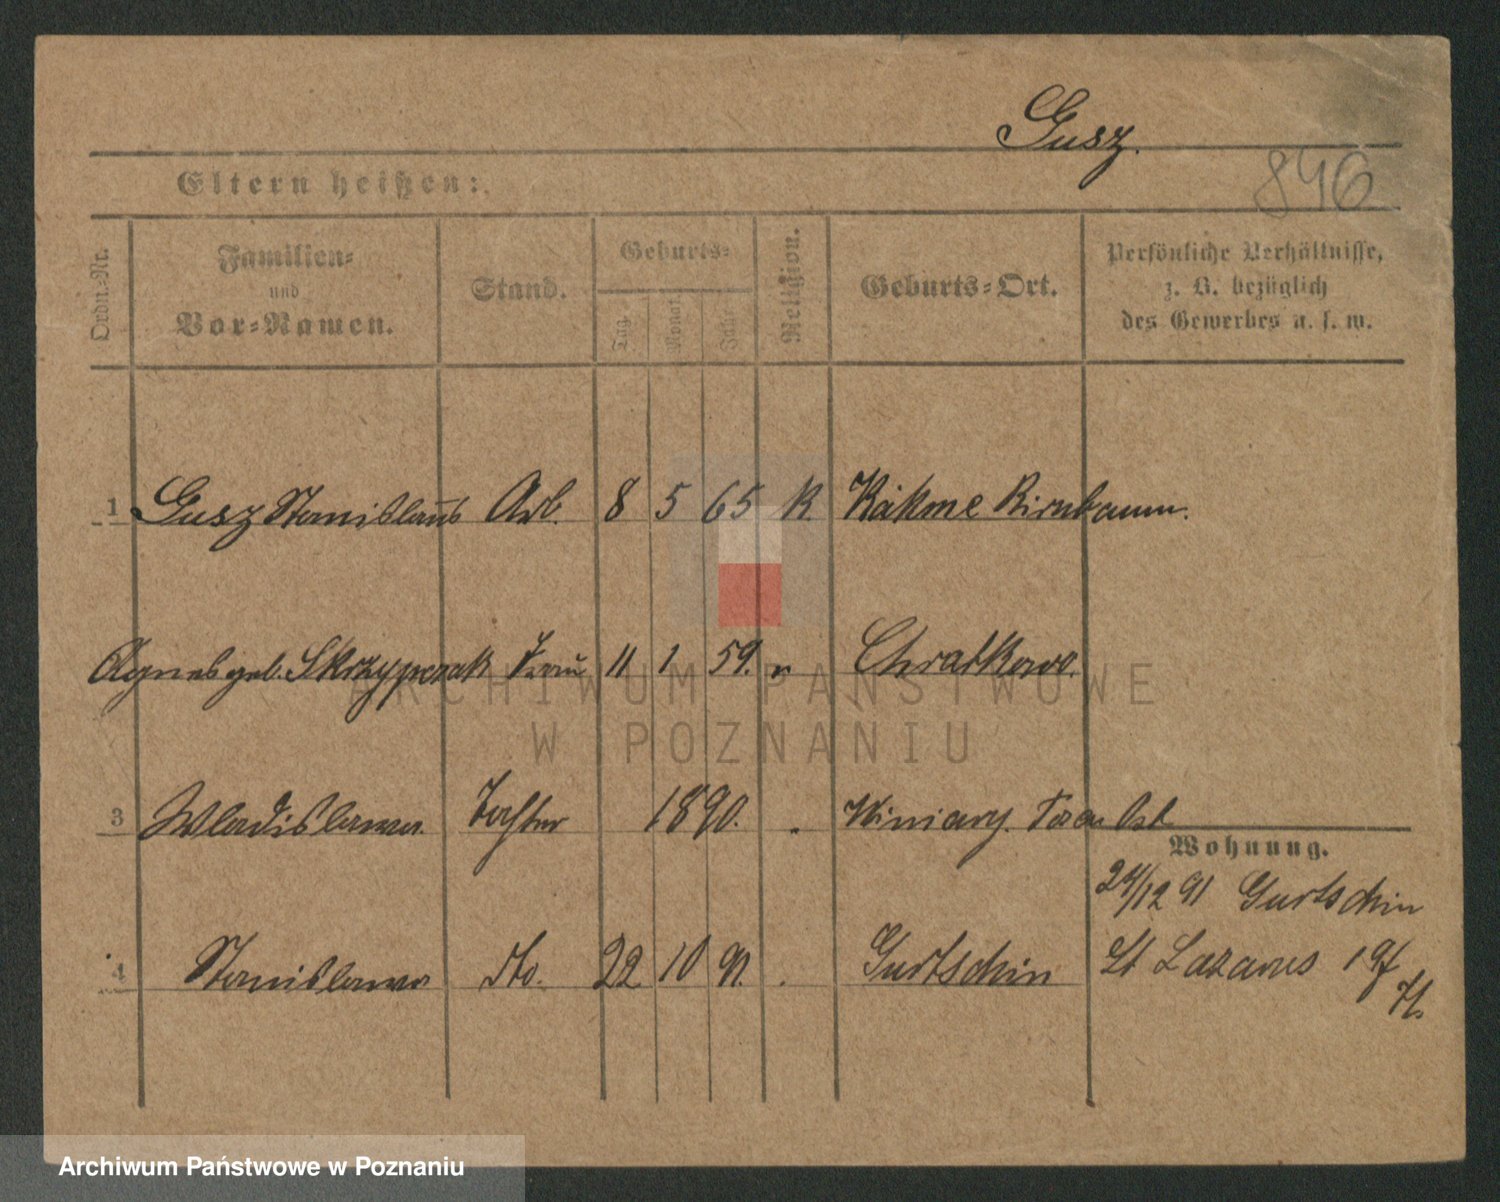 Gusz.
846
Eltern heißen:
Ordn.-Nr.
Familien-
und
Vor-Namen.
Stand.
Geburts-
Tag.
Monat.
Jahr.
Religion.
Geburts-Ort.
Persönliche Verhältnisse,
z. B. bezüglich
des Gewerbes u. s. w.
1 Gusz Stanislaus Arb. 8 5 65 K. Kähme Birnbaum.
Agnes geb. Skrzypczak Frau 11 1 59. " Chratkowo.
3 Wladislawa Tochter 1890. Winiary. Posen Ost
Wohnung.
24/12 91 Gurtschin
4 Stanislawa do. 22 10 91. Gurtschin St Lazarus
ARCHIWUM PAŃSTWOWE
W POZNANIU
Archiwum Państwowe w Poznaniu